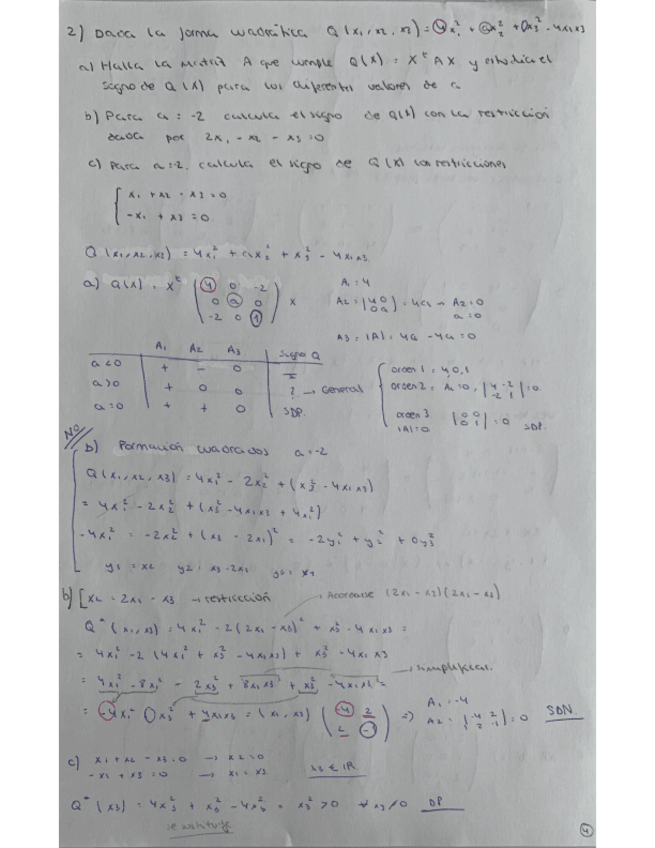 2) Dada la forma cuadrática Q(x1, x2, x3) = 4x1² + ax2² + x3² - 4x1x3
a) Halla la matriz A que cumple Q(x) = X^t A X y estudia el
signo de Q(x) para los diferentes valores de a.
b) Para a = -2 calcula el signo de Q(x) con la restricción
dada por 2x1 - x2 - x3 = 0
c) Para a = -2, calcula el signo de Q(x) con restricciones
{ x1 + x2 - x3 = 0
-x1 + x3 = 0
Q(x1, x2, x3) = 4x1² + ax2² + x3² - 4x1x3
a) Q(x) = X^t ( 4 0 -2 / 0 a 0 / -2 0 1 ) X
A1 = 4
A2 = |4 0 / 0 a| = 4a → A2 = 0
a = 0
A3 = |A| = 4a - 4a = 0
A1 A2 A3 Signo Q
a<0 + - 0 I
a>0 + 0 0 ? → General
a=0 + + 0 SDP.
orden 1 = 4, 0, 1
orden 2 = A2 = 0, |4 -2 / -2 1| = 0
orden 3 |A| = 0 |0 0 / 0 1| = 0 SDP
NO
b) Formación cuadrados a = -2
Q(x1, x2, x3) = 4x1² - 2x2² + (x3² - 4x1x3)
= 4x1² - 2x2² + (x3² - 4x1x3 + 4x1²)
-4x1² = -2x2² + (x3 - 2x1)² = -2y1² + y2² + 0y3²
y1 = x2 y2 = x3 - 2x1 y3 = x1
b) [x2 = 2x1 - x3 → restricción
Acordarse (2x1 - x3)(2x1 - x3)
Q*(x1, x3) = 4x1² - 2(2x1 - x3)² + x3² - 4x1x3 =
= 4x1² - 2(4x1² + x3² - 4x1x3) + x3² - 4x1x3
= 4x1² - 8x1² - 2x3² + 8x1x3 + x3² - 4x1x3 =
→ simplificar.
= -4x1² - x3² + 4x1x3 = (x1, x3) ( -4 2 / 2 -1 ) ⇒ A1 = -4
A2 = |-4 2 / 2 -1| = 0 SDN.
c) x1 + x2 - x3 = 0 → x2 = 0
-x1 + x3 = 0 → x1 = x3
x3 ∈ IR
Q*(x3) = 4x3² + x3² - 4x3² = x3² > 0 ∀ x3 ≠ 0 DP
se sustituye
4